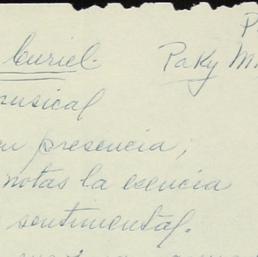 P
Curiel. Paky M
musical
su presencia,
notas la esencia
sentimental.